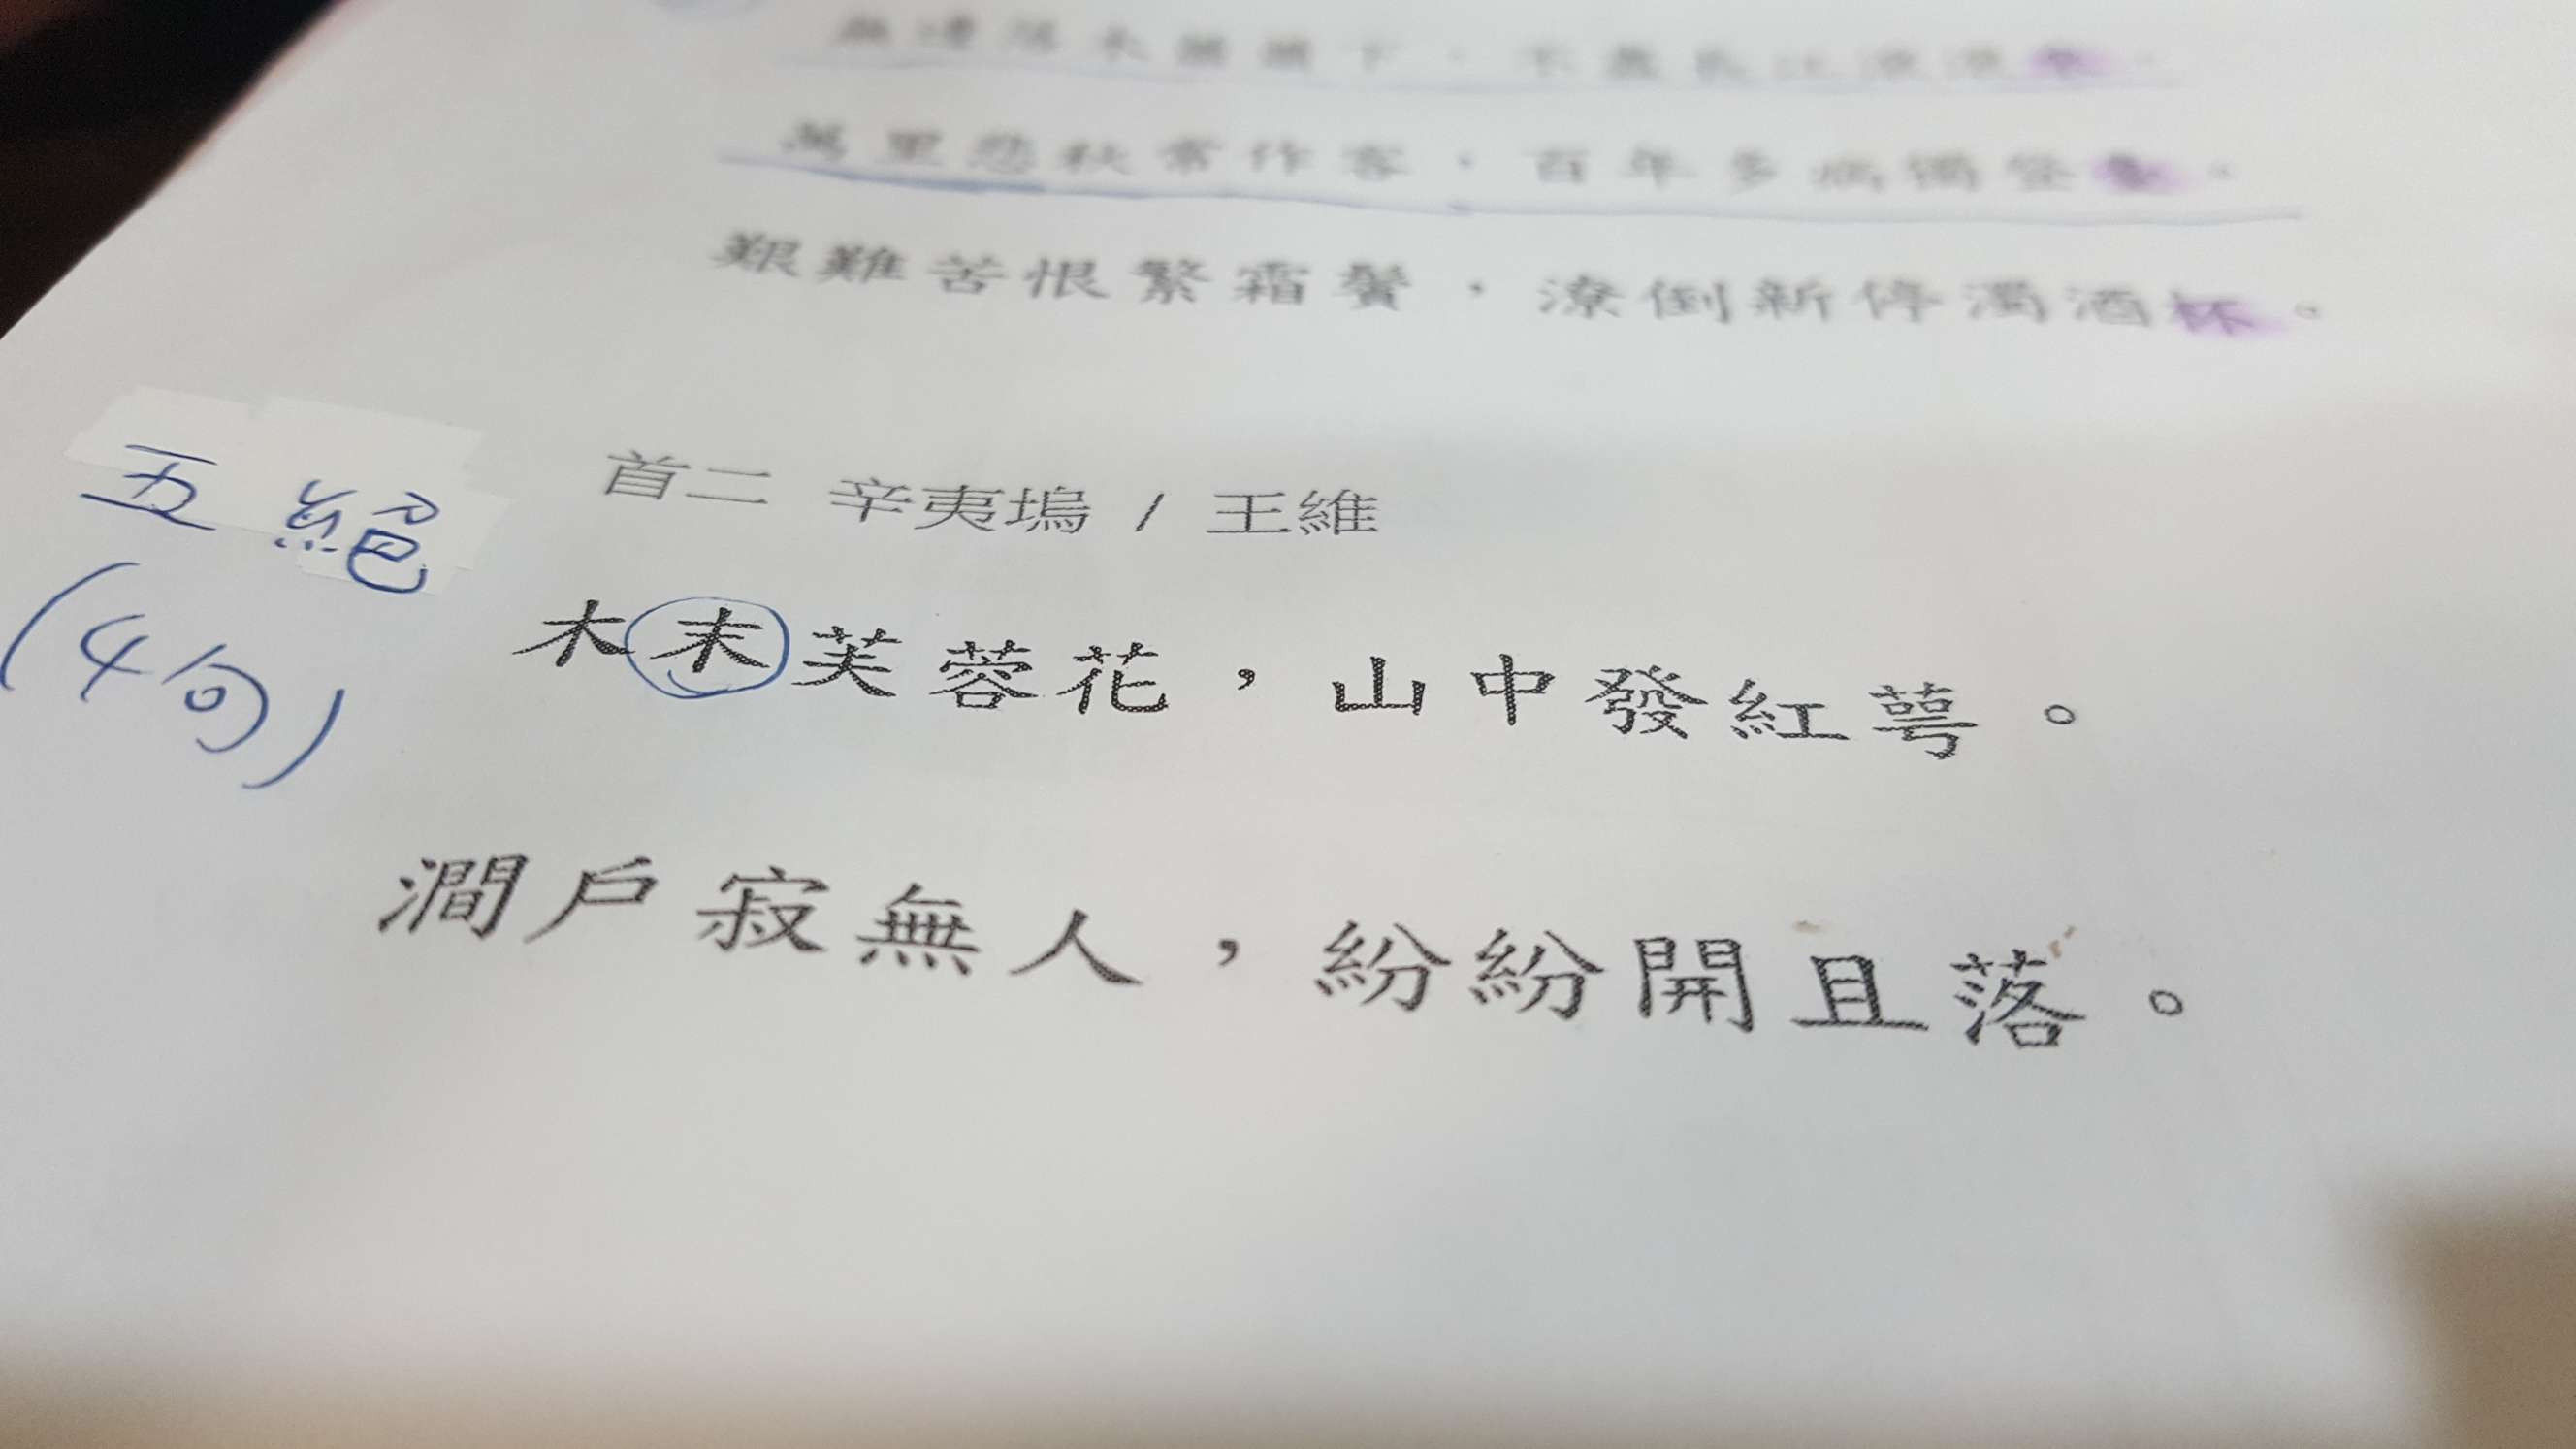 無邊落木蕭蕭下，不盡長江滾滾來。
萬里悲秋常作客，百年多病獨登臺。
艱難苦恨繁霜鬢，潦倒新停濁酒杯。
五絕
(4句)
首二 辛夷塢 / 王維
木末芙蓉花，山中發紅萼。
澗戶寂無人，紛紛開且落。